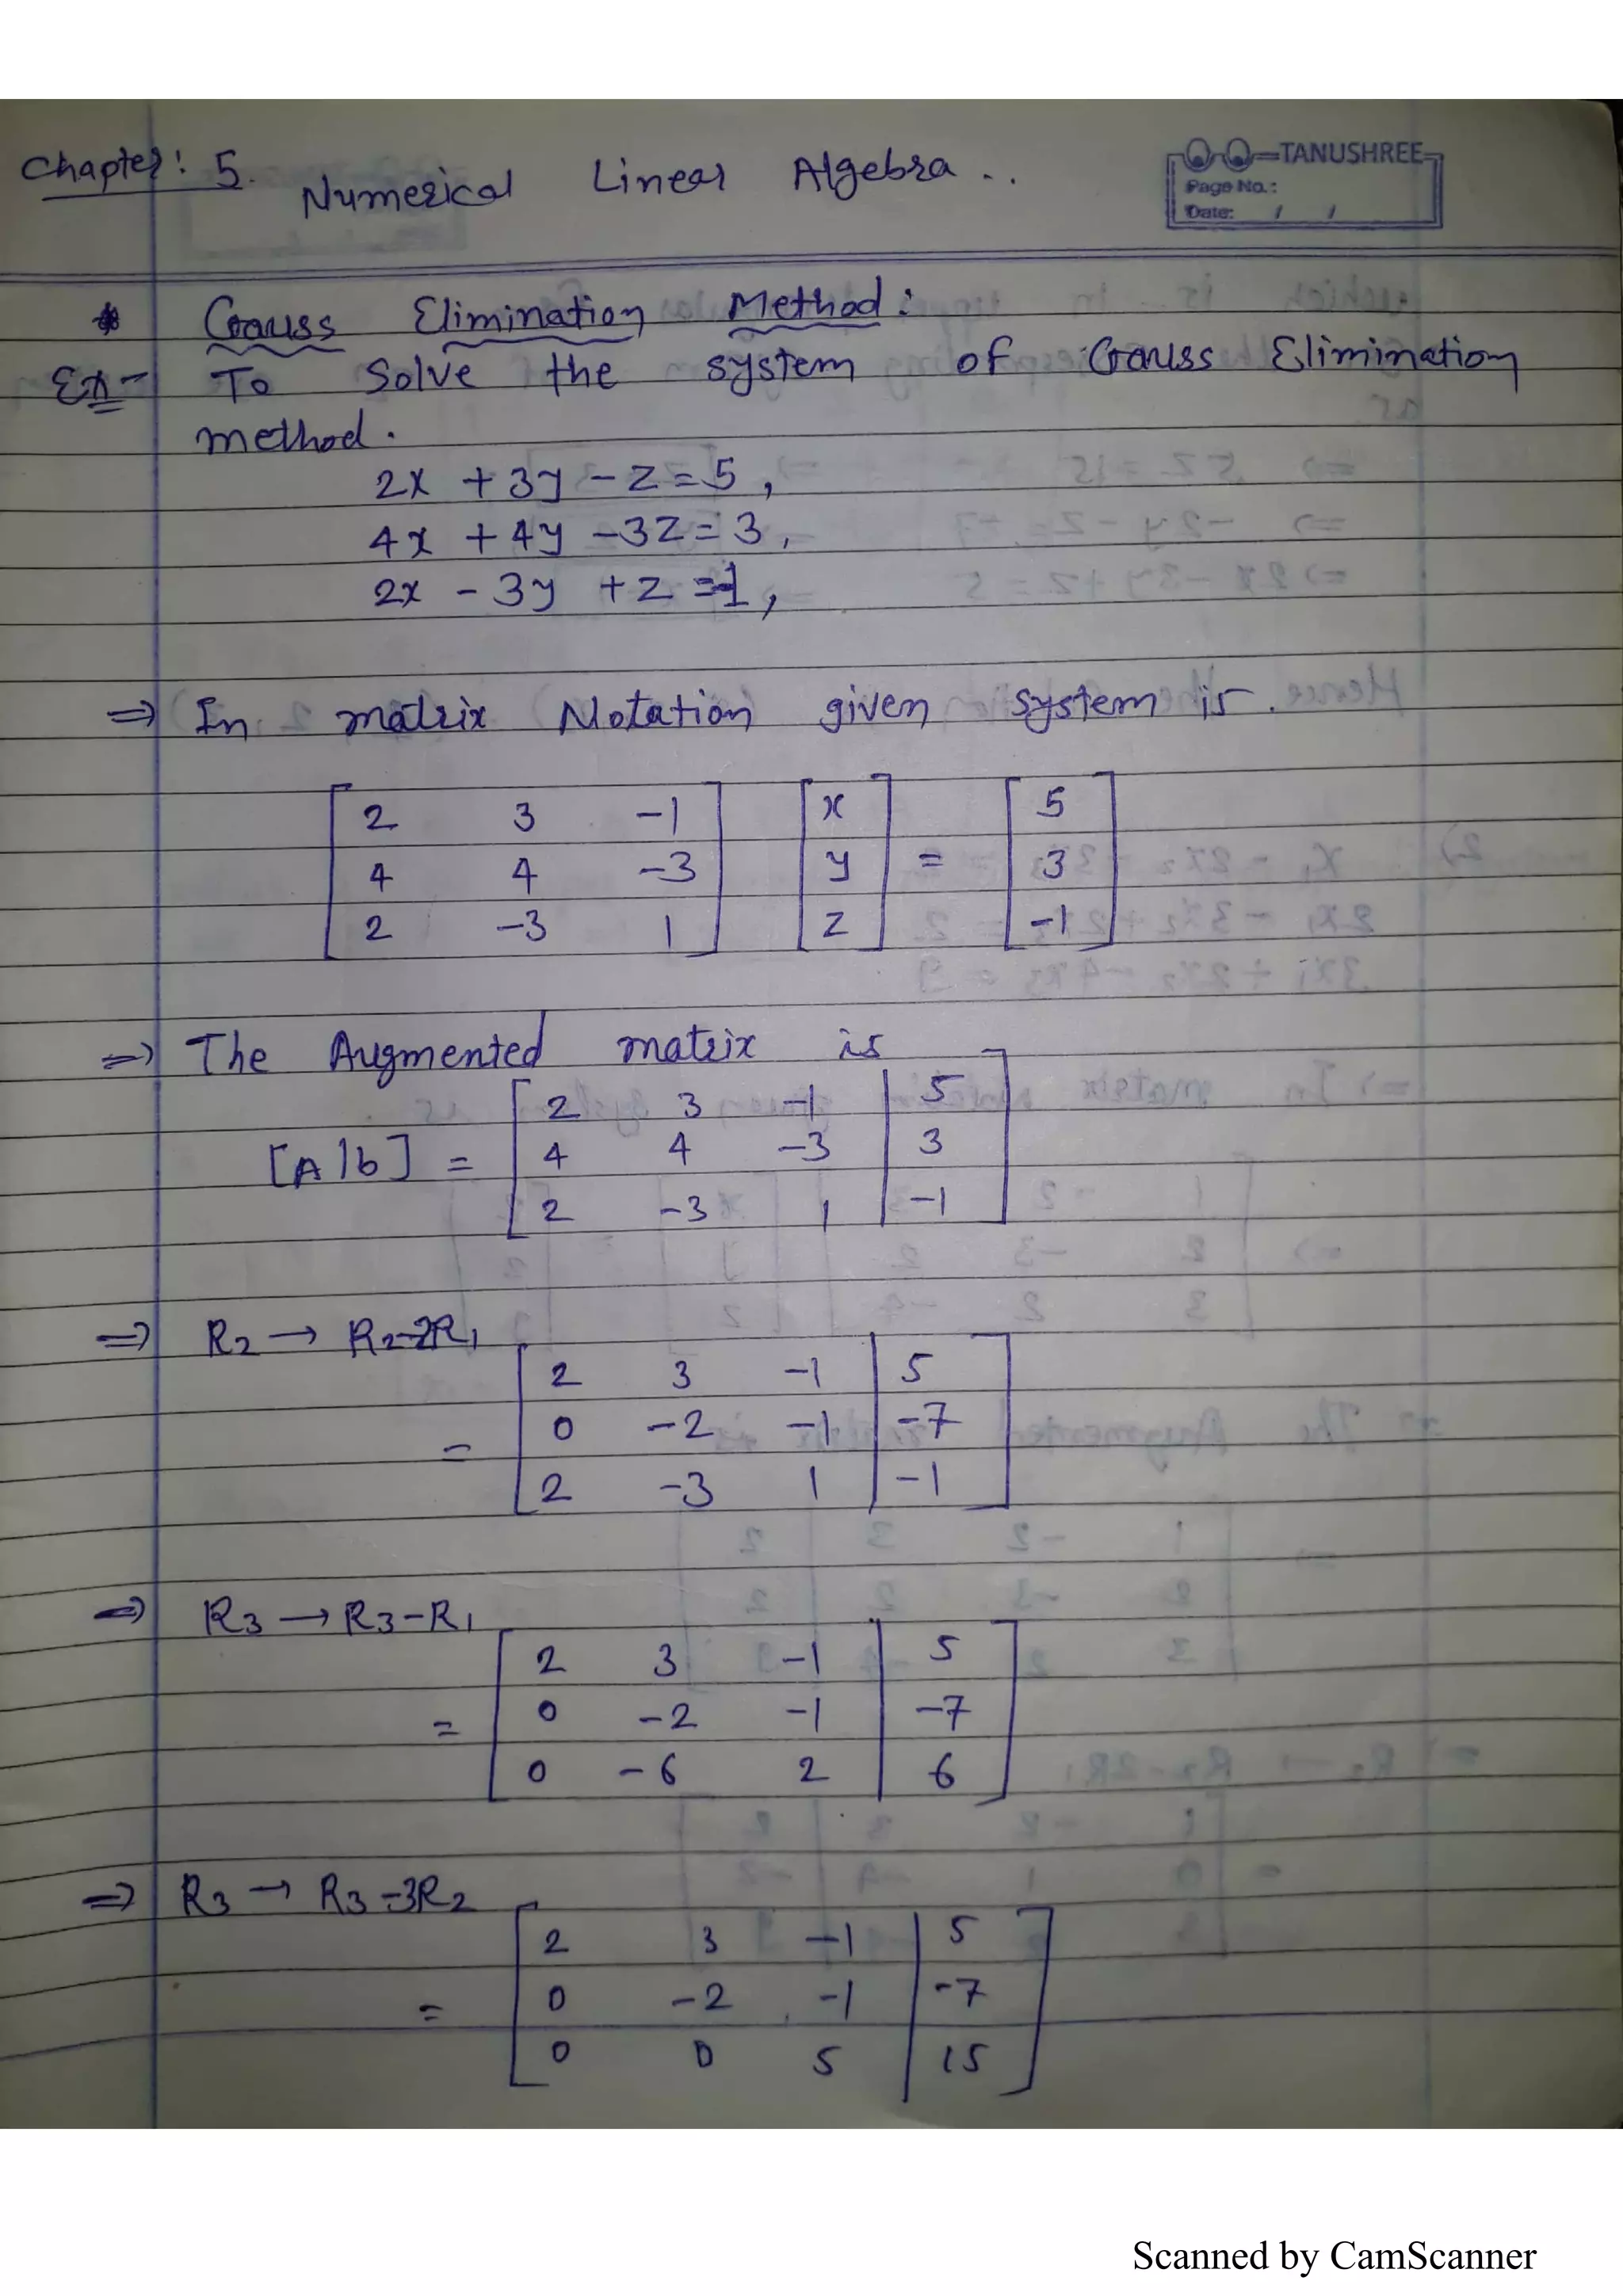 Chapter: 5. Numerical Linear Algebra ..
TANUSHREE
Page No.:
Date: / /
* Gauss Elimination Method:
Ex - To Solve the system of Gauss Elimination
method.
2x + 3y - z = 5,
4x + 4y - 3z = 3,
2x - 3y + z = -1,
⇒ In matrix Notation given system is.
[ 2 3 -1 ] [ x ] [ 5 ]
[ 4 4 -3 ] [ y ] = [ 3 ]
[ 2 -3 1 ] [ z ] [ -1 ]
⇒ The Augmented matrix is
[ 2 3 -1 | 5 ]
[A|b] = [ 4 4 -3 | 3 ]
[ 2 -3 1 | -1 ]
⇒ R2 → R2-2R1
[ 2 3 -1 | 5 ]
= [ 0 -2 -1 | -7 ]
[ 2 -3 1 | -1 ]
⇒ R3 → R3-R1
[ 2 3 -1 | 5 ]
= [ 0 -2 -1 | -7 ]
[ 0 -6 2 | 6 ]
⇒ R3 → R3-3R2
[ 2 3 -1 | 5 ]
= [ 0 -2 -1 | -7 ]
[ 0 0 5 | 15 ]
Scanned by CamScanner